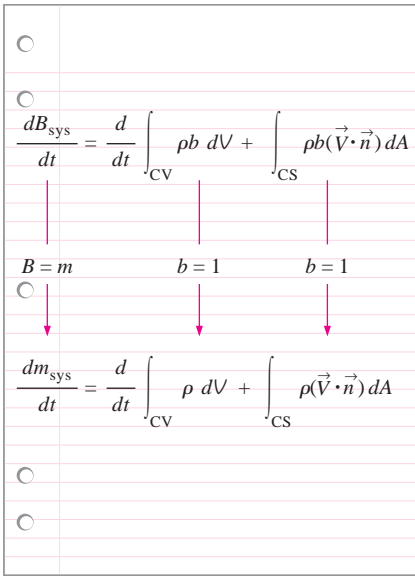 dB_sys/dt = d/dt ∫_CV ρb dV + ∫_CS ρb(V⃗·n⃗) dA
B = m b = 1 b = 1
dm_sys/dt = d/dt ∫_CV ρ dV + ∫_CS ρ(V⃗·n⃗) dA